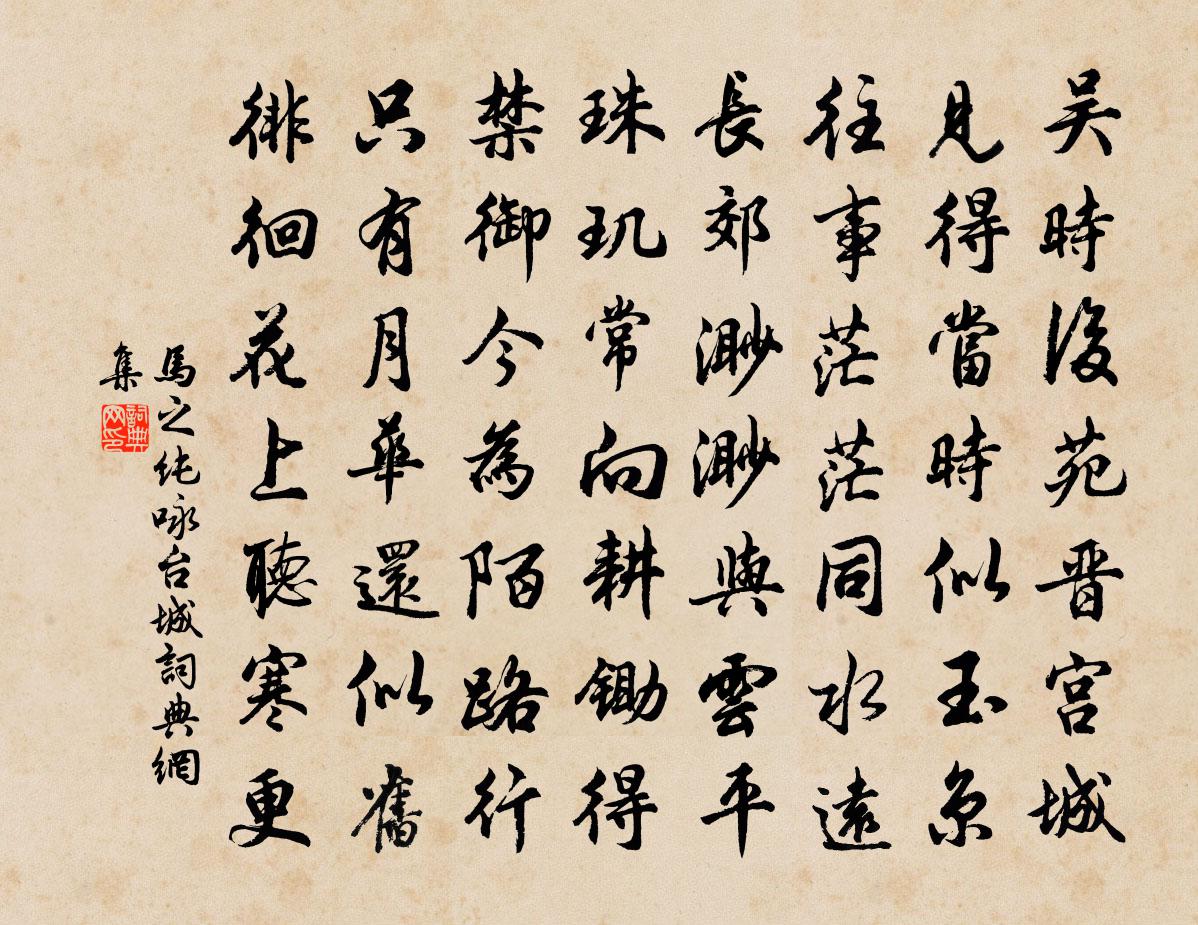 吴時後苑晋宫城
見得當時似玉京
往事茫茫同水遠
長郊渺渺與雲平
珠玑常向耕鋤得
禁御今為陌路行
只有月華還似舊
徘徊花上聽寒更
馬之純咏台城詞典網
集
詞典
网印